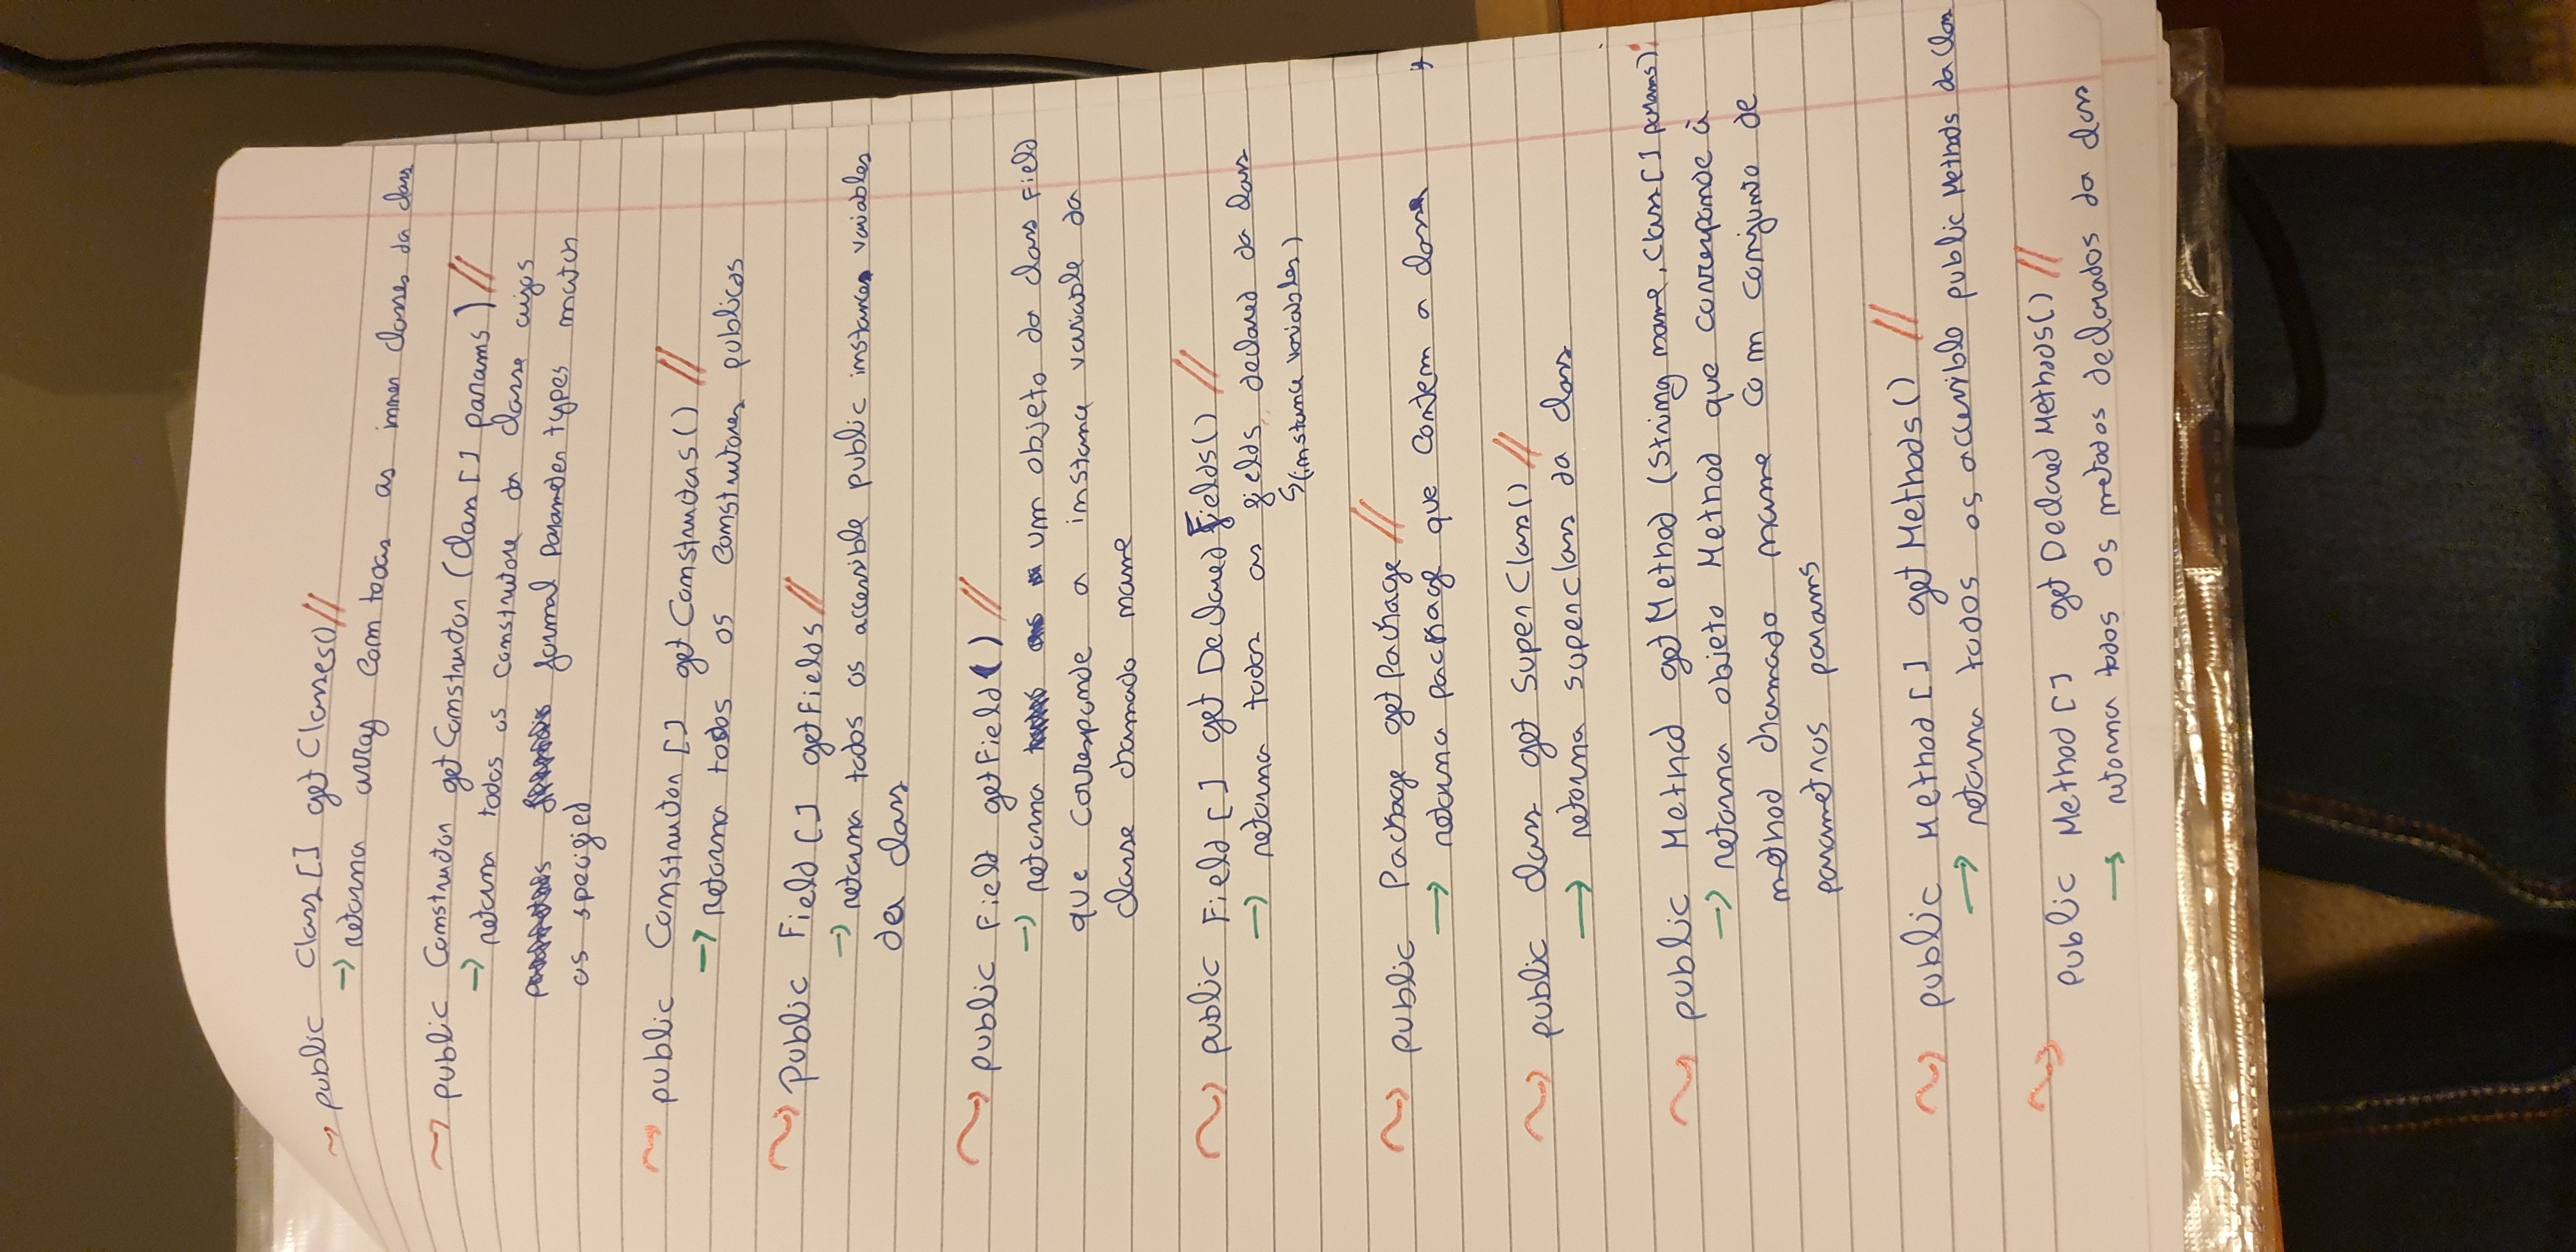 ~> public Class [] getClasses() //
→ retorna array com todas as inner classes da class
~> public Constructor getConstructor (Class [] params) //
→ retorna todos os construtore da classe cujos
formal parameter types match
os specified
~> public Constructor [] getConstructors() //
→ Retorna todos os construtores publicos
~> public Field [] getFields //
→ retorna todos os accessible public instance variables
da class
~> public Field getField() //
→ retorna um objeto da class Field
que corresponde a instance variable da
classe chamado name
~> public Field [] getDeclaredFields() //
→ retorna todos as fields declared da class
↳(instance variables)
~> public Package getPackage //
→ retorna package que contem a classe
~> public class getSuperClass() //
→ retorna superclass da class
~> public Method getMethod (String name, Class [] params)
→ retorna objeto Method que corresponde à
method chamado name com conjunto de
parametros params
~> public Method [] getMethods() //
→ retorna todos os accessible public Methods da Class
~> public Method [] getDeclaredMethods() //
→ retorna todos os metodos declarados da class